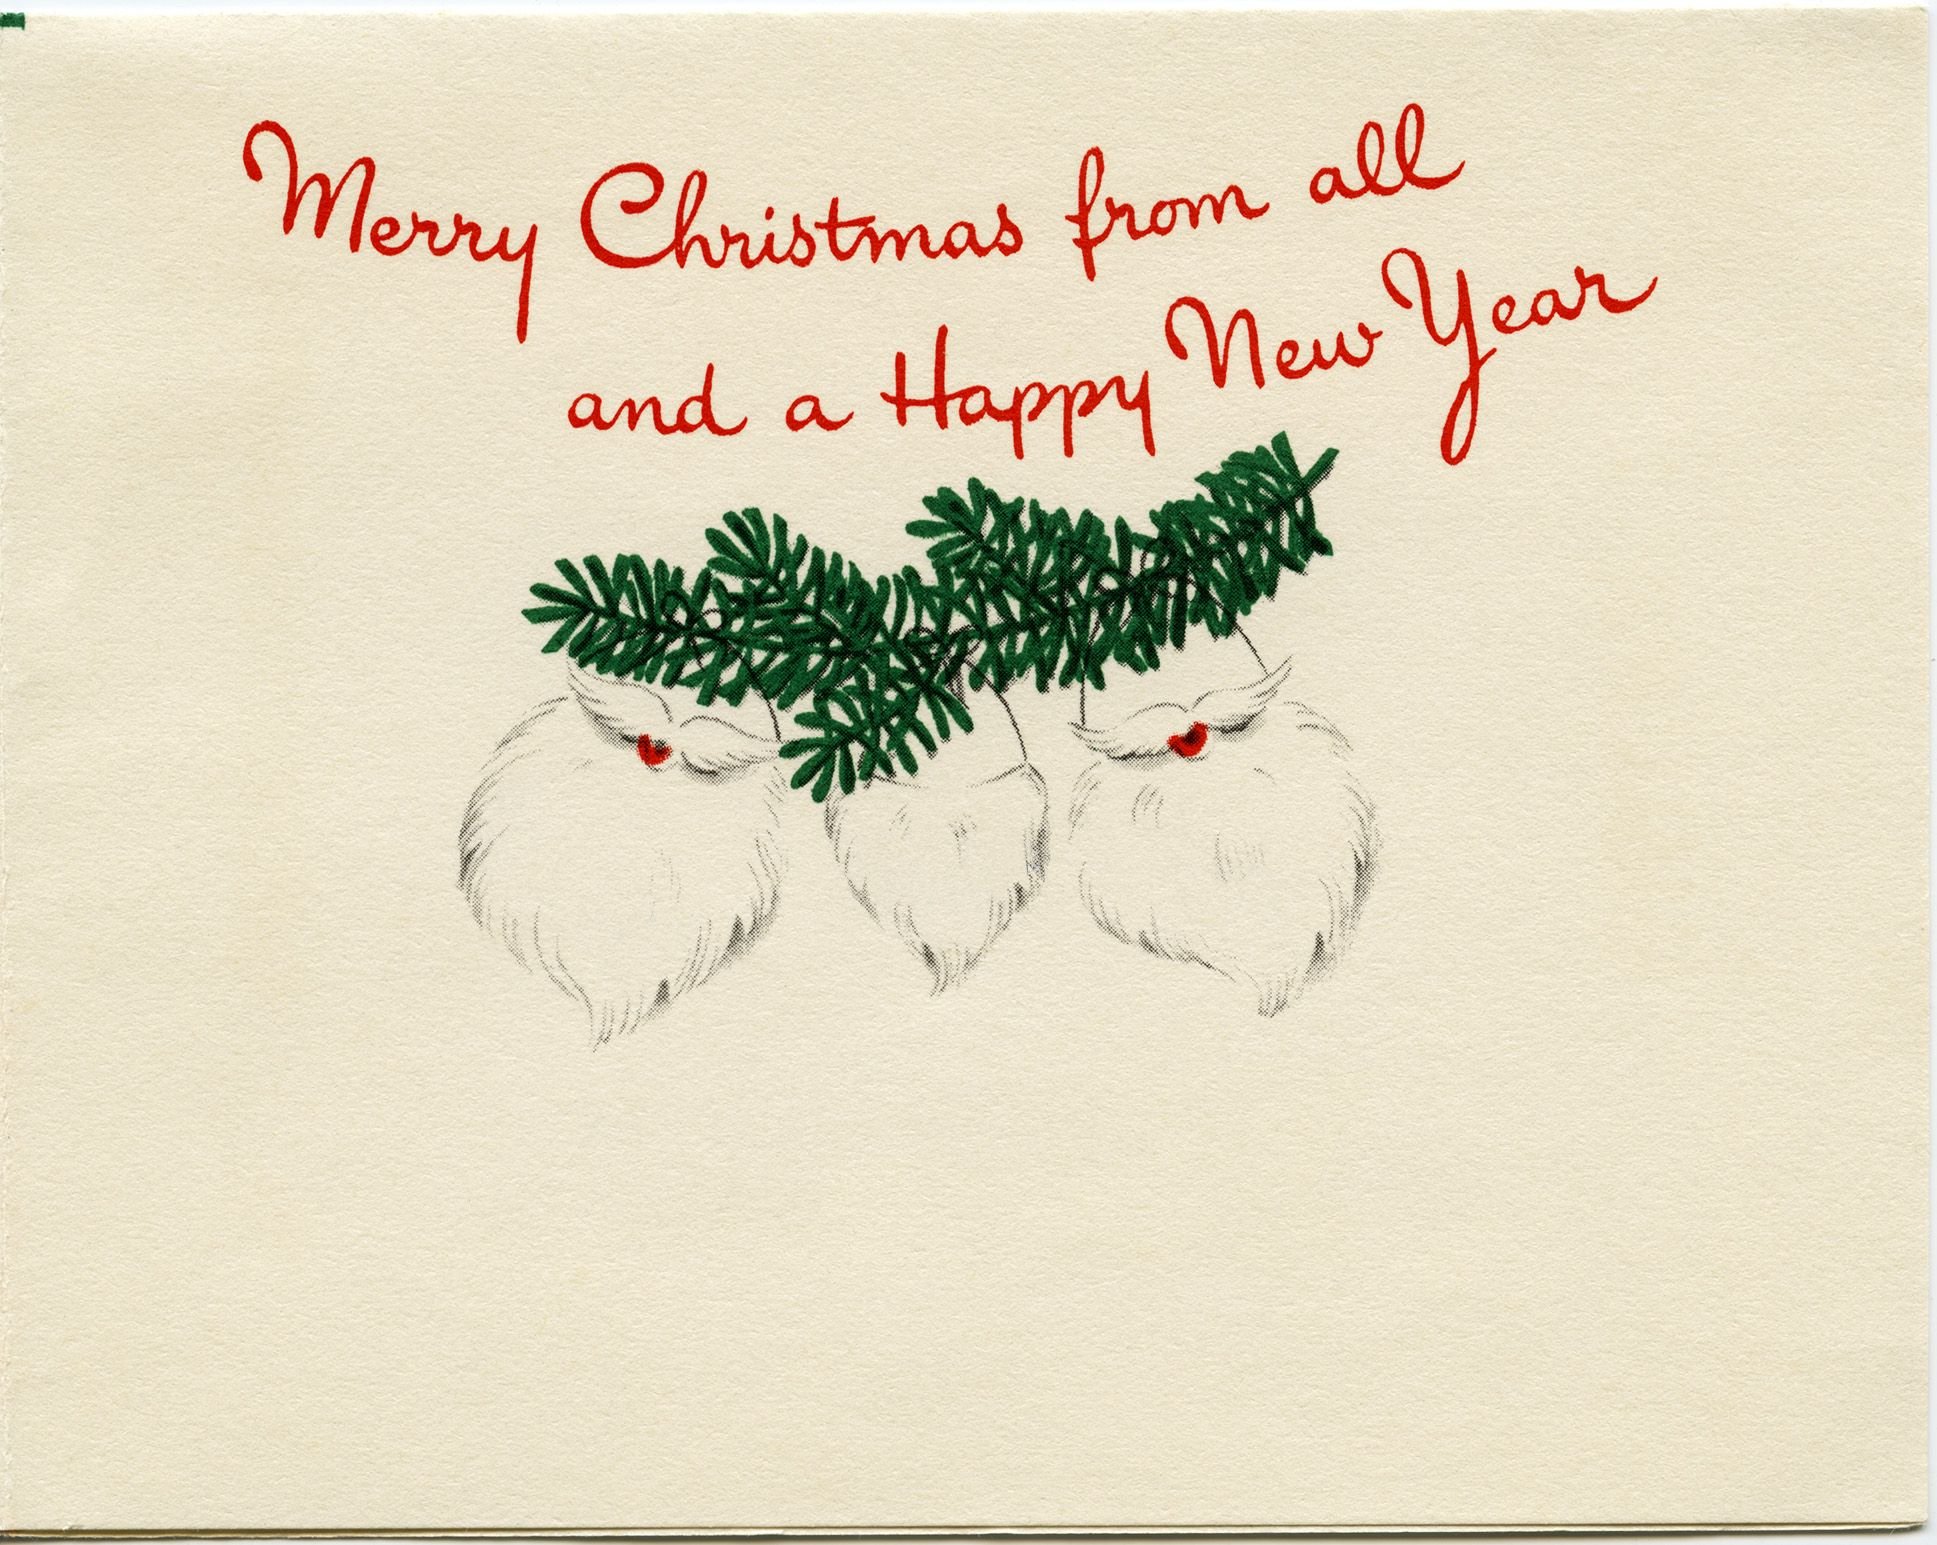 Merry Christmas from all
and a Happy New Year